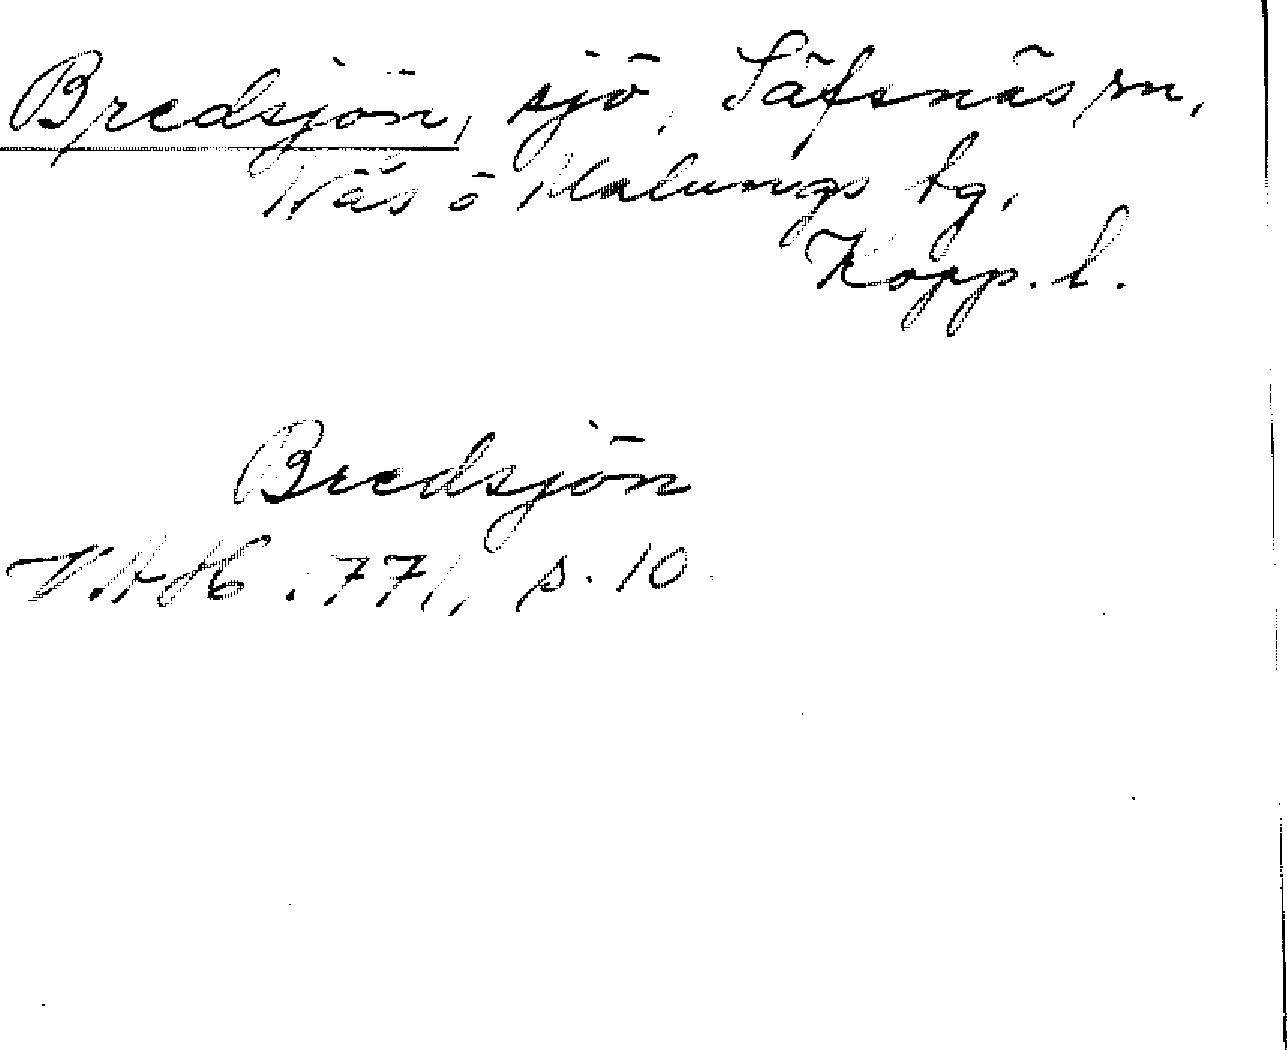 Bredsjön, sjö, Säfsnäs sn,
Näs o Malungs tg,
Kopp. l.
Bredsjön
V.A.H. 771, s. 10